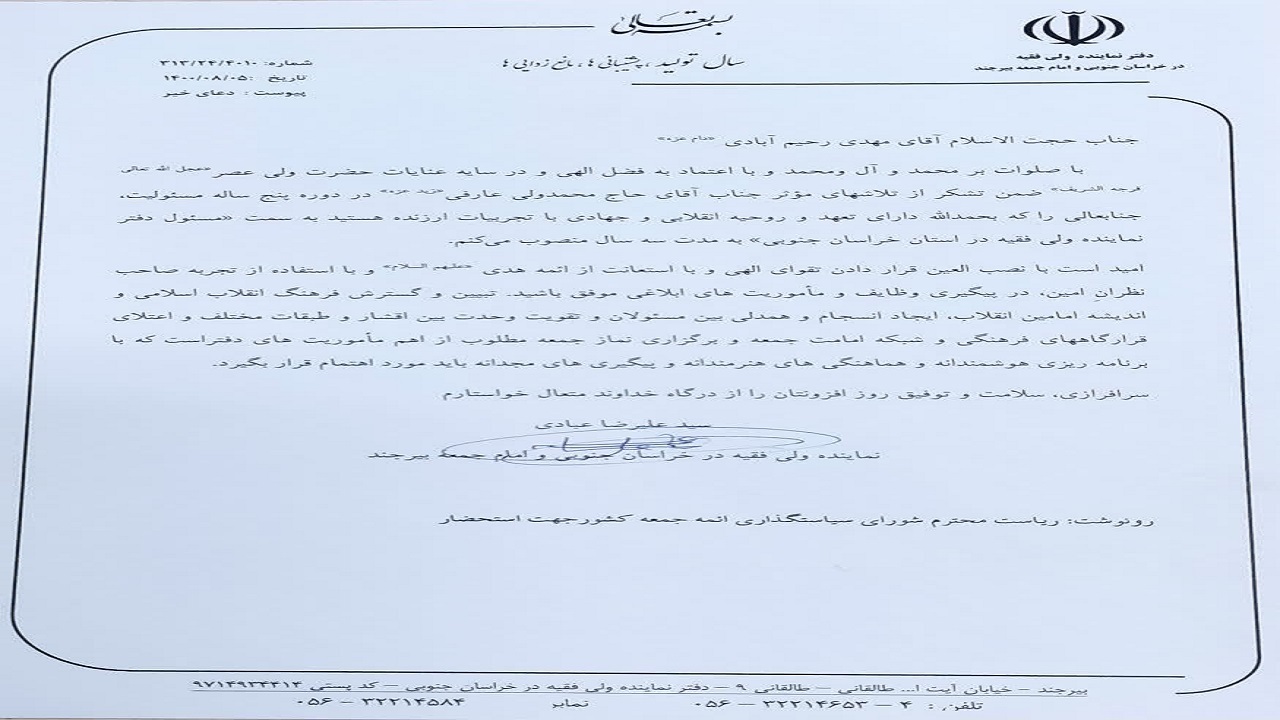 بسمه تعالی
سال تولید ، پشتیبانی ها ، مانع زدایی ها
دفتر نماینده ولی فقیه
در خراسان جنوبی و امام جمعه بیرجند
شماره: ۳۱۳/۲۴/۴۰۱۰
تاریخ : ۱۴۰۰/۰۸/۰۵
پیوست : دعای خیر
جناب حجت الاسلام آقای مهدی رحیم آبادی «دام عزه»
با صلوات بر محمد و آل ومحمد و با اعتماد به فضل الهی و در سایه عنایات حضرت ولی عصر«عجل الله تعالی
فرجه الشریف» ضمن تشکر از تلاشهای مؤثر جناب آقای حاج محمدولی عارفی«زید عزه» در دوره پنج ساله مسئولیت،
جنابعالی را که بحمدالله دارای تعهد و روحیه انقلابی و جهادی با تجربیات ارزنده هستید به سمت «مسئول دفتر
نماینده ولی فقیه در استان خراسان جنوبی» به مدت سه سال منصوب می‌کنم.
امید است با نصب العین قرار دادن تقوای الهی و با استعانت از ائمه هدی «علیهم السلام» و با استفاده از تجربه صاحب
نظران امین، در پیگیری وظایف و مأموریت های ابلاغی موفق باشید. تبیین و گسترش فرهنگ انقلاب اسلامی و
اندیشه امامین انقلاب، ایجاد انسجام و همدلی بین مسئولان و تقویت وحدت بین اقشار و طبقات مختلف و اعتلای
قرارگاههای فرهنگی و شبکه امامت جمعه و برگزاری نماز جمعه مطلوب از اهم مأموریت های دفتراست که با
برنامه ریزی هوشمندانه و هماهنگی های هنرمندانه و پیگیری های مجدانه باید مورد اهتمام قرار بگیرد.
سرافرازی، سلامت و توفیق روز افزونتان را از درگاه خداوند متعال خواستارم
سید علیرضا عبادی
نماینده ولی فقیه در خراسان جنوبی و امام جمعه بیرجند
رونوشت: ریاست محترم شورای سیاستگذاری ائمه جمعه کشورجهت استحضار
بیرجند – خیابان آیت ا... طالقانی – طالقانی ۹ – دفتر نماینده ولی فقیه در خراسان جنوبی – کد پستی ۹۷۱۴۹۳۴۴۱۴
تلفن: ۴ – ۳۲۲۱۴۶۵۳ – ۰۵۶ نمابر ۳۲۲۱۴۵۸۴ – ۰۵۶